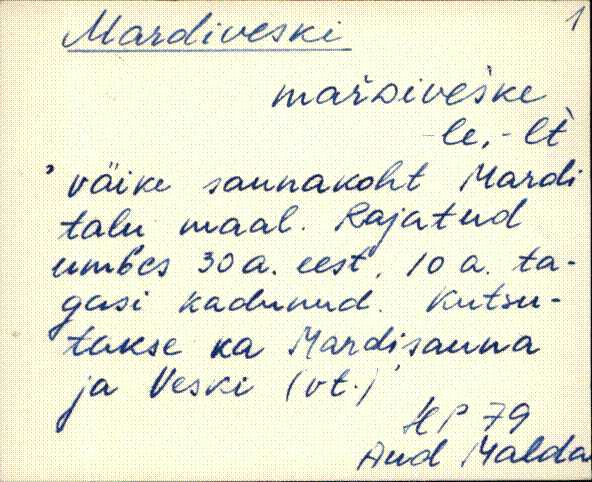 Mardiveski 1
mařᴅiveške
-le, -lt
' väike saunakoht Mardi
talu maal. Rajatud
umbes 30 a. eest, 10 a. ta-
gasi kadunud. Kutsu-
takse ka Mardisauna
ja Veski (vt.)'
79
And Malda